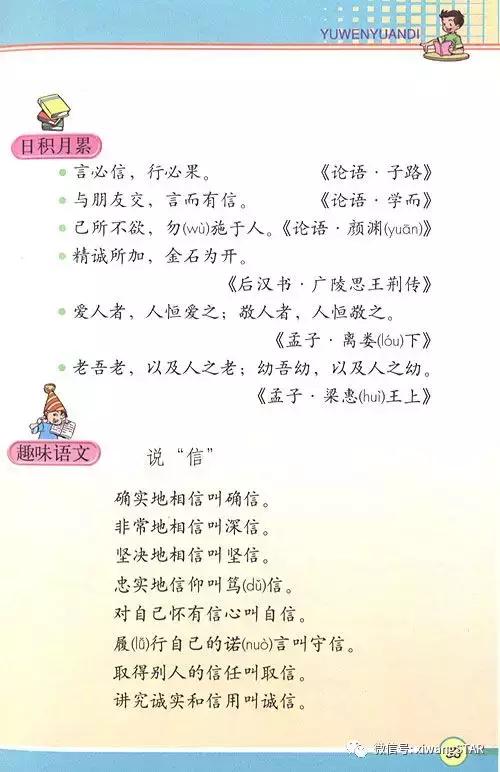 YUWENYUANDI
日积月累
言必信，行必果。 《论语·子路》
与朋友交，言而有信。 《论语·学而》
己所不欲，勿(wù)施于人。《论语·颜渊(yuān)》
精诚所加，金石为开。
《后汉书·广陵思王荆传》
爱人者，人恒爱之；敬人者，人恒敬之。
《孟子·离娄(lóu)下》
老吾老，以及人之老；幼吾幼，以及人之幼。
《孟子·梁惠(huì)王上》
趣味语文
说“信”
确实地相信叫确信。
非常地相信叫深信。
坚决地相信叫坚信。
忠实地信仰叫笃(dǔ)信。
对自己怀有信心叫自信。
履(lǚ)行自己的诺(nuò)言叫守信。
取得别人的信任叫取信。
讲究诚实和信用叫诚信。
微信号: xiwangSTAR